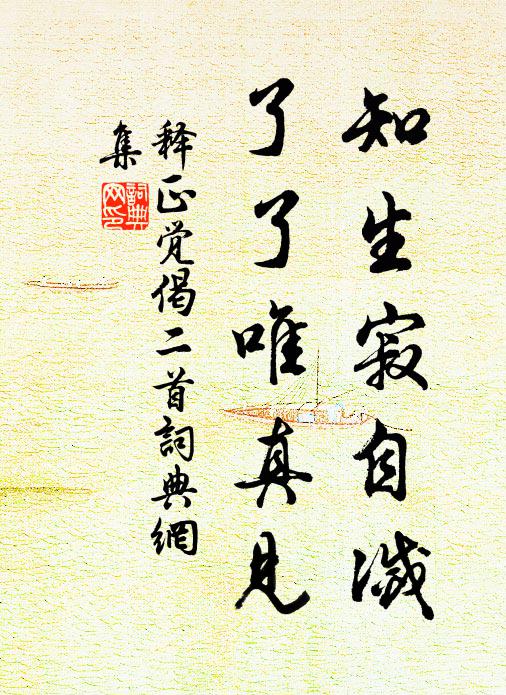 知生寂自滅
了了唯真見
释正觉偈二首詞典網
集
詞典网印